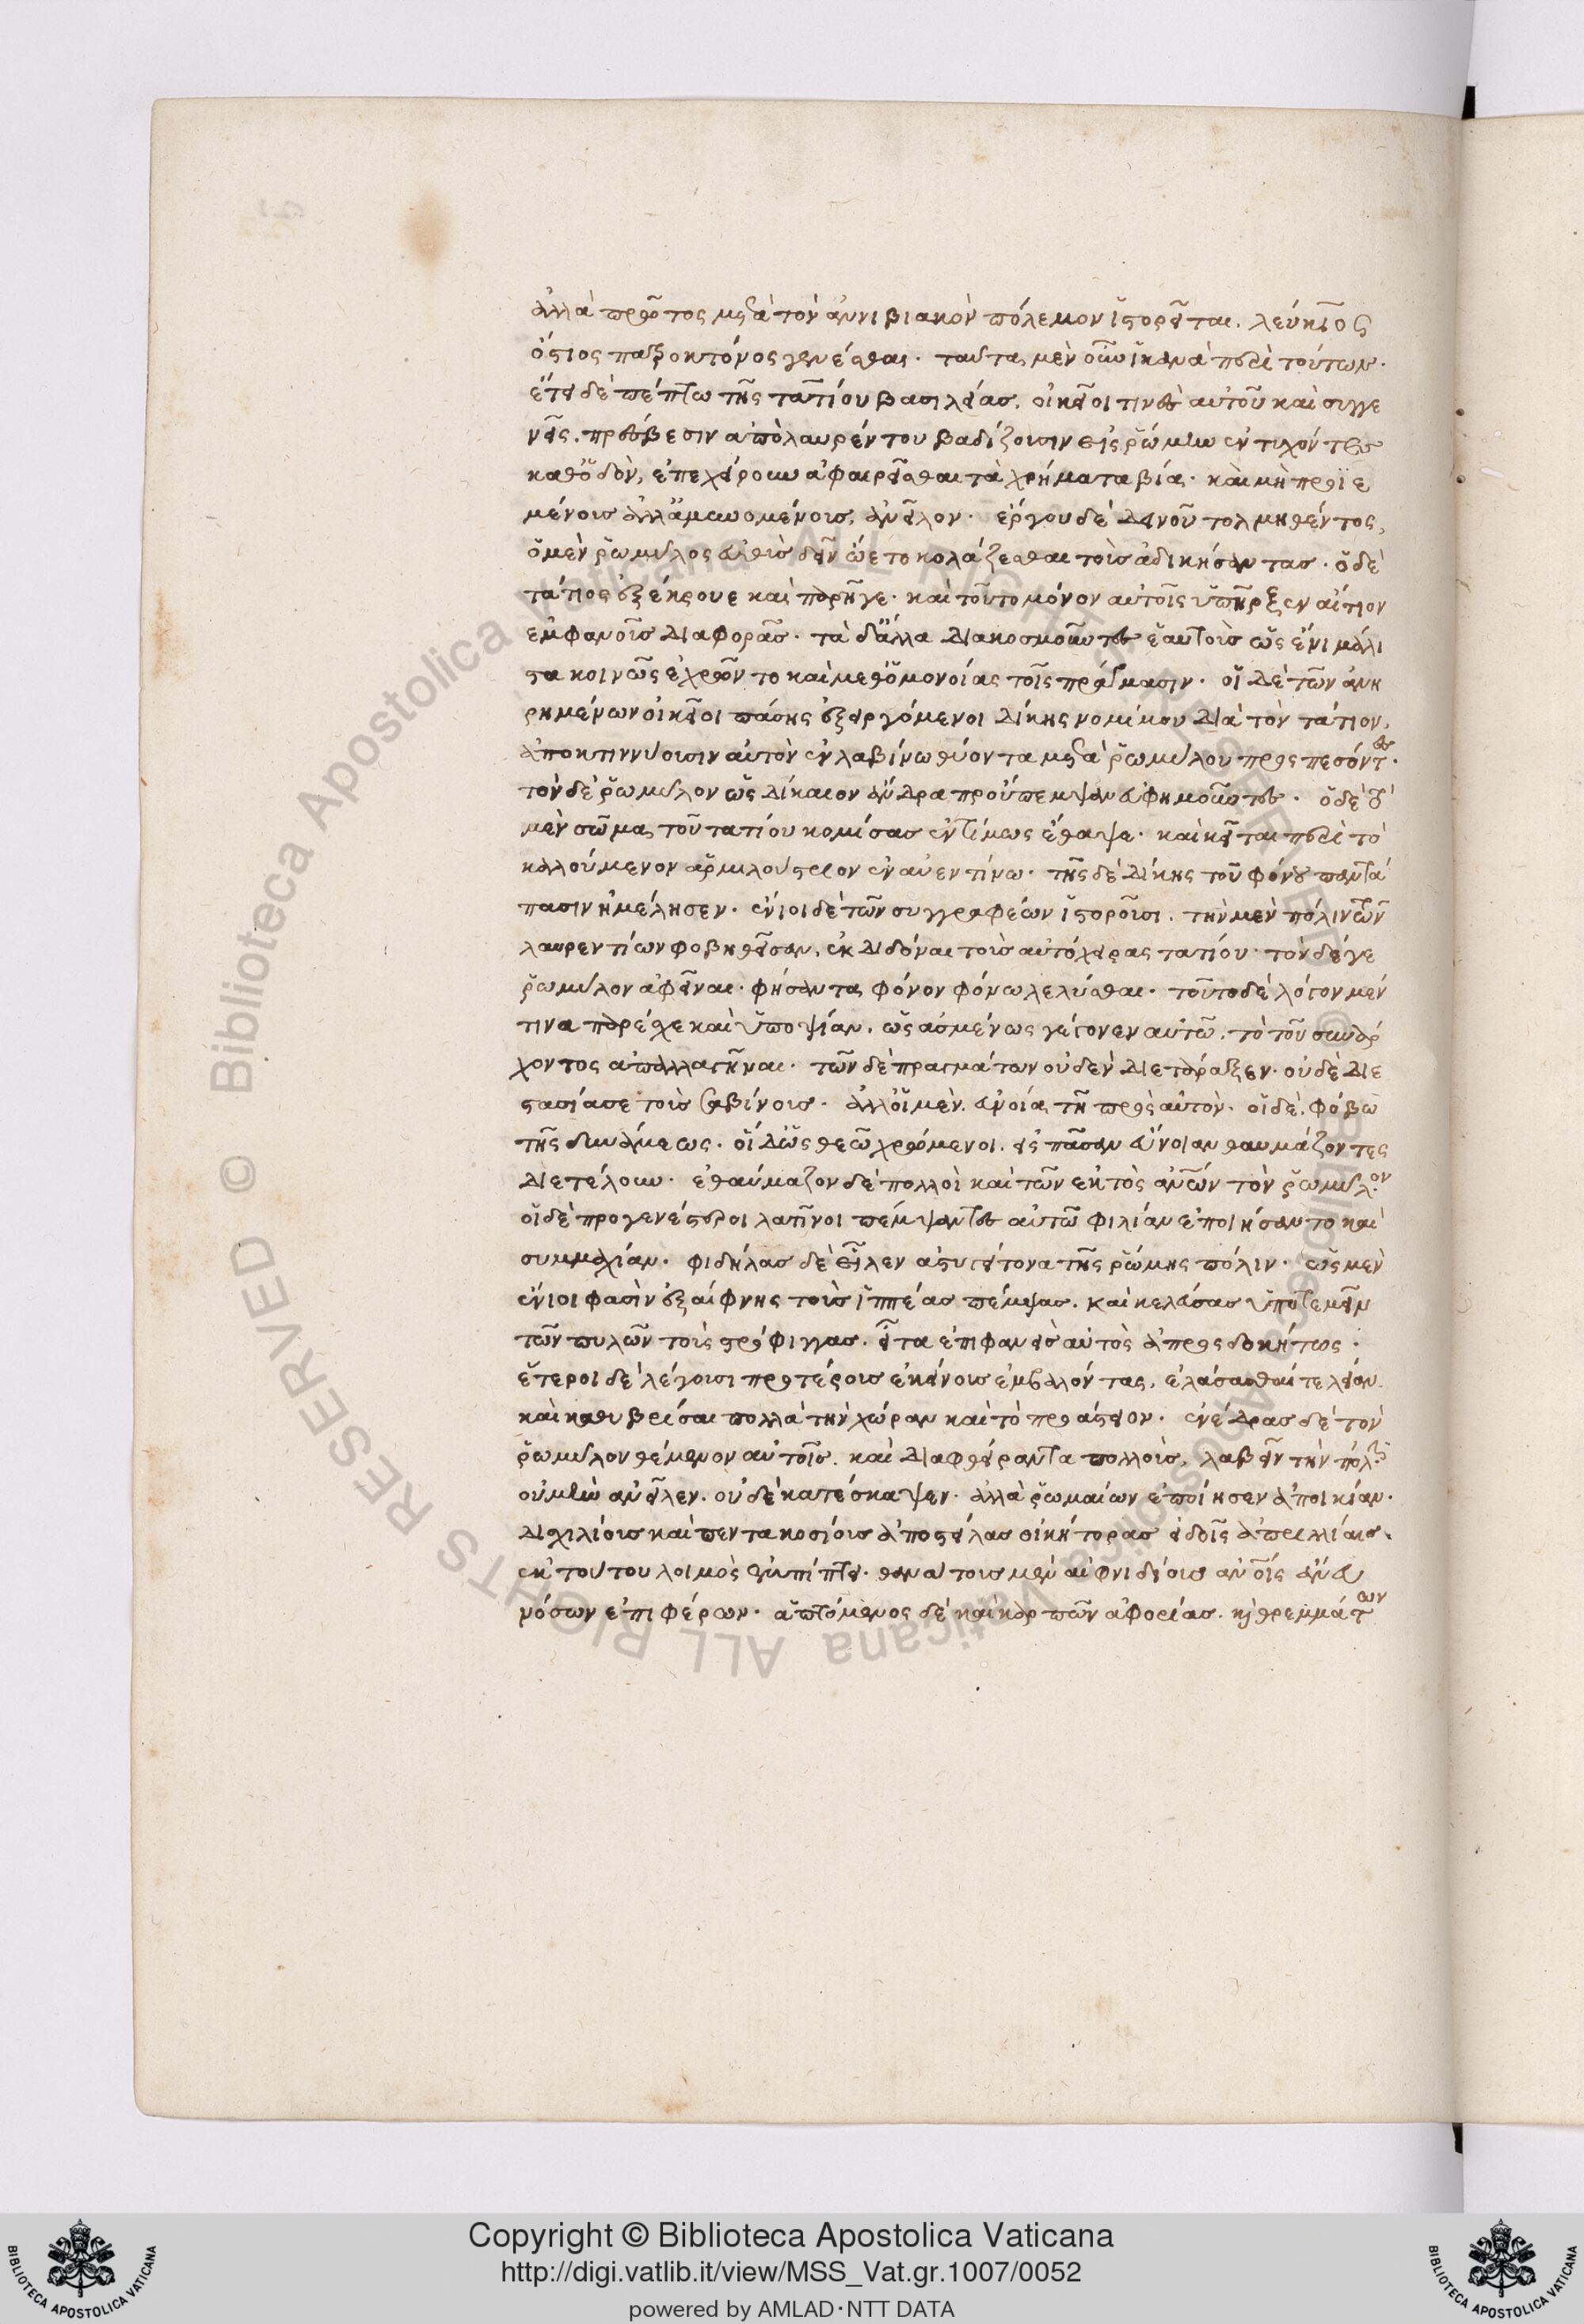 ἀλλὰ πρῶτος μετὰ τὸν ἀννιβιακὸν πόλεμον ἱστορεῖται. λεύκιος
ὅστιος πατροκτόνος γενέσθαι. ταῦτα μὲν οὖν ἱκανὰ περὶ τούτων.
ἔτει δὲ πέμπτω τῆς τατίου βασιλείας. οἰκεῖοι τινὲς αὐτοῦ καὶ συγγε
νεῖς. πρέσβεσιν ἀπὸ λαυρέντου βαδίζουσιν εἰς ῥώμην ἐντυχόντες
καθ' ὁδὸν, ἐπεχείρουν ἀφαιρεῖσθαι τὰ χρήματα βία. καὶ μὴ προϊε
μένους ἀλλ' ἀμυνομένους, ἀνεῖλον. ἔργου δὲ δεινοῦ τολμηθέντος,
ὁ μὲν ῥωμύλος εὐθὺς δεῖν ὤετο κολάζεσθαι τοὺς ἀδικήσαντας. ὁ δὲ
τάτιος ἐξέκρουε καὶ παρῆγε. καὶ τοῦτο μόνον αὐτοῖς ὑπῆρξεν αἴτιον
ἐμφανοῦς διαφορᾶς. τὰ δ' ἄλλα διακοσμοῦντες ἑαυτοὺς ὡς ἔνι μάλι
στα κοινῶς ἐχρῶντο καὶ μεθ' ὁμονοίας τοῖς πράγμασιν. οἱ δὲ τῶν ἀνη
ρημένων οἰκεῖοι πάσης ἐξειργόμενοι δίκης νομίμου διὰ τὸν τάτιον,
ἀποκτιννύουσιν αὐτὸν ἐν λαβίνω θύοντα μετὰ ῥωμύλου προσπεσόντες.
τὸν δὲ ῥωμύλον ὡς δίκαιον ἄνδρα προὔπεμψαν εὐφημοῦντες. ὁ δὲ τὸ
μὲν σῶμα τοῦ τατίου κομίσας ἐντίμως ἔθαψε. καὶ κεῖται περὶ τὸ
καλούμενον ἁρμιλούστριον ἐν αὐεντίνω. τῆς δὲ δίκης τοῦ φόνου παντά
πασιν ἠμέλησεν. ἔνιοι δὲ τῶν συγγραφέων ἱστοροῦσι. τὴν μὲν πόλιν τῶν
λαυρεντίων φοβηθεῖσαν, ἐκδιδόναι τοὺς αὐτόχειρας τατίου. τὸν δέ γε
ῥωμύλον ἀφεῖναι. φήσαντα φόνον φόνω λελύσθαι. τοῦτο δὲ λόγον μέν
τινα παρέσχε καὶ ὑποψίαν, ὡς ἀσμένως γέγονεν αὐτῶ. τὸ τοῦ συνάρ
χοντος ἀπαλλαγῆναι. τῶν δὲ πραγμάτων οὐδὲν διετάραξεν. οὐδὲ διε
στασίασε τοὺς σαβίνους. ἀλλ' οἱ μὲν εὐνοία τῆ πρὸς αὐτὸν. οἱ δὲ φόβω
τῆς δυνάμεως. οἱ δ' ὡς θεῶ χρώμενοι. εἰς πᾶσαν εὔνοιαν θαυμάζοντες
διετέλουν. ἐθαύμαζον δὲ πολλοὶ καὶ τῶν ἐκτὸς ἀνθρώπων τὸν ῥωμύλον
οἱ δὲ προγενέστεροι λατῖνοι πέμψαντες αὐτῶ φιλίαν ἐποιήσαντο καὶ
συμμαχίαν. φιδήνας δὲ εἷλεν ἀστυγείτονα τῆς ῥώμης πόλιν. ὡς μὲν
ἔνιοι φασὶν ἐξαίφνης τοὺς ἱππέας πέμψας. καὶ κελεύσας ὑποτεμεῖν
τῶν πυλῶν τοὺς στρόφιγγας. εἶτα ἐπιφανεὶς αὐτὸς ἀπροσδοκήτως.
ἕτεροι δὲ λέγουσι προτέρους ἐκείνους ἐμβαλόντας, ἐλάσασθαί τε λείαν.
καὶ καθυβρίσαι πολλὰ τὴν χώραν καὶ τὸ προάστειον. ἐνέδρας δὲ τὸν
ῥωμύλον θέμενον αὐτοῖς. καὶ διαφθείραντα πολλοὺς, λαβεῖν τὴν πόλιν.
οὐ μὴν ἀνεῖλεν. οὐδὲ κατέσκαψεν. ἀλλὰ ῥωμαίων ἐποίησεν ἀποικίαν.
δισχιλίους καὶ πεντακοσίους ἀποστείλας οἰκήτορας εἰδοῖς ἀπριλλίαις.
ἐκ τούτου λοιμὸς ἐμπίπτει. θανάτους μὲν αἰφνιδίους ἀνθρώποις ἄνευ
νόσων ἐπιφέρων. ἁπτόμενος δὲ καὶ καρπῶν ἀφορίας. καὶ θρεμμάτων
Copyright © Biblioteca Apostolica Vaticana
http://digi.vatlib.it/view/MSS_Vat.gr.1007/0052
powered by AMLAD·NTT DATA